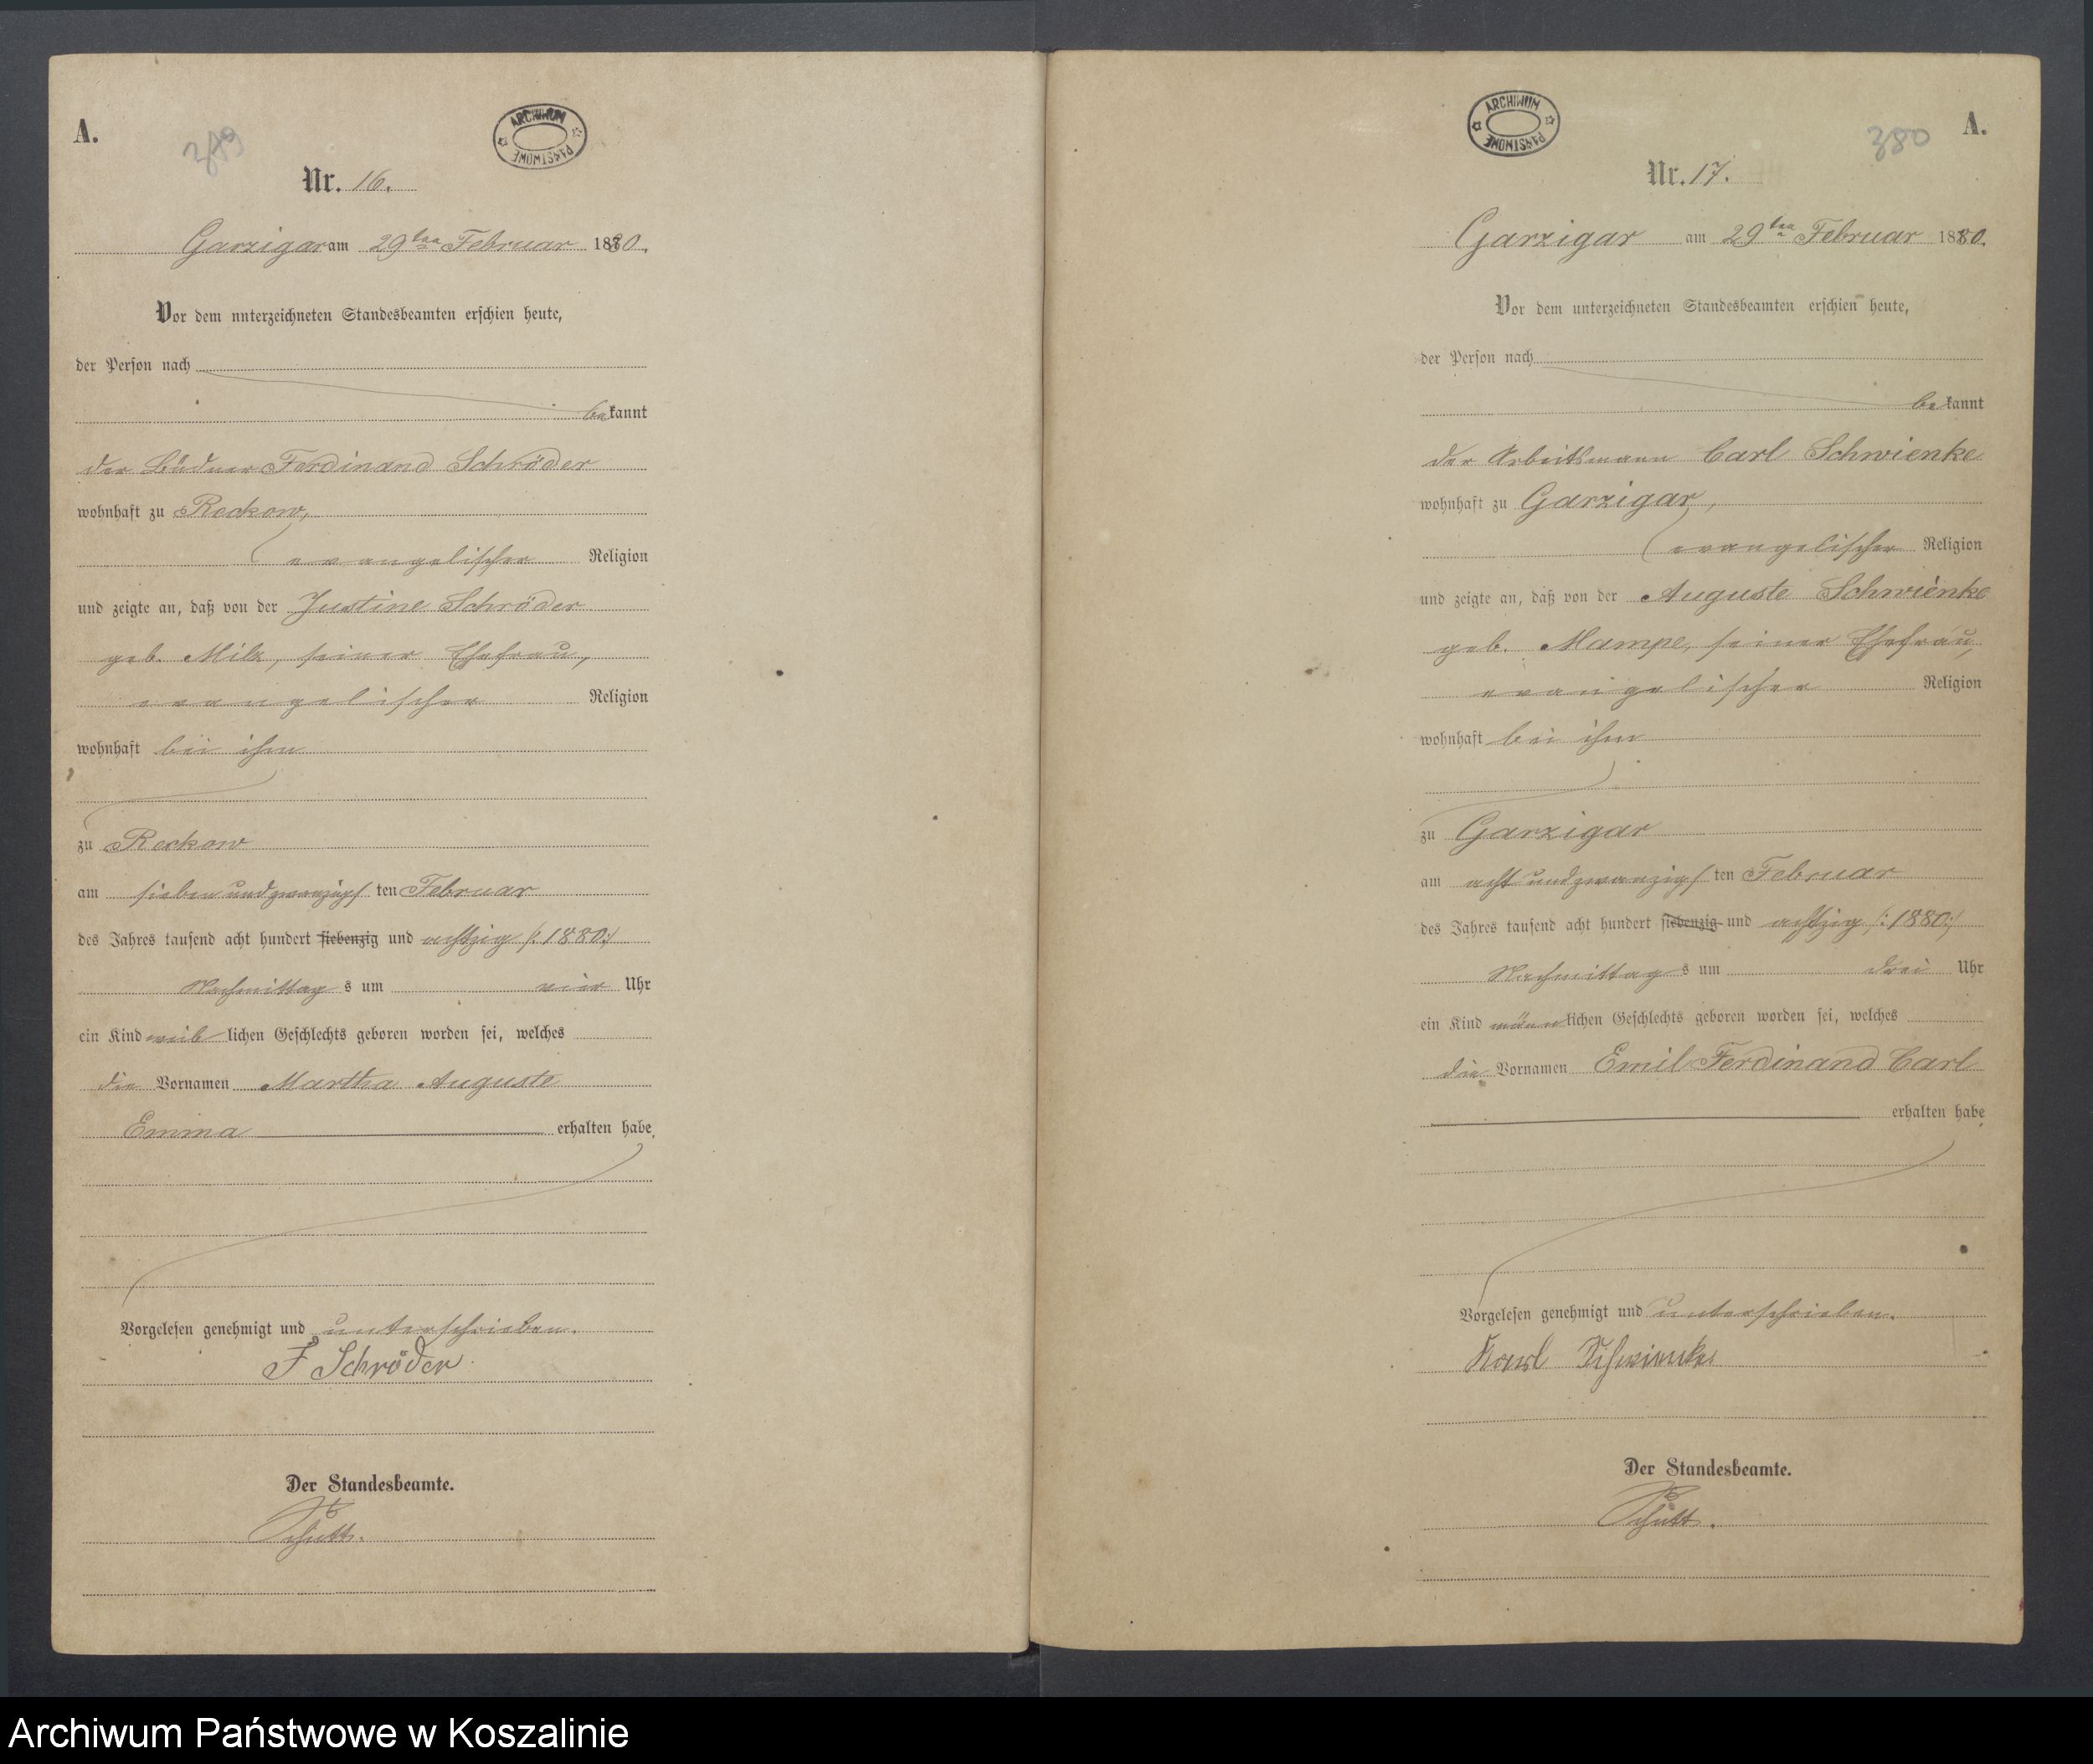 A.
ARCHIWUM
PAŃSTWOWE
Nr. 16.
Garzigar am 29ten Februar 1880.
Vor dem nnterzeichneten Standesbeamten erschien heute,
der Person nach
bekannt
der Büdner Ferdinand Schröder
wohnhaft zu Reckow,
evangelischer Religion
und zeigte an, daß von der Justine Schröder
geb. Milz, seiner Ehefrau,
evangelischer Religion
wohnhaft bei ihm
zu Reckow
am sieben und zwanzigsten Februar
des Jahres tausend acht hundert siebenzig und achtzig /:1880:/
Nachmittags um vier Uhr
ein Kind weiblichen Geschlechts geboren worden sei, welches
die Vornamen Martha Auguste
Emma erhalten habe.
Vorgelesen genehmigt und unterschrieben.
F Schröder
Der Standesbeamte.
A.
380
ARCHIWUM
PAŃSTWOWE
Nr. 17.
Garzigar am 29ten Februar 1880.
Vor dem unterzeichneten Standesbeamten erschien heute,
der Person nach
bekannt
der Arbeitsmann Carl Schwienke
wohnhaft zu Garzigar,
evangelischer Religion
und zeigte an, daß von der Auguste Schwienke
geb. Mampe, seiner Ehefrau,
evangelischer Religion
wohnhaft bei ihm
zu Garzigar
am acht und zwanzigsten Februar
des Jahres tausend acht hundert siebenzig und achtzig /:1880:/
Nachmittags um drei Uhr
ein Kind männlichen Geschlechts geboren worden sei, welches
die Vornamen Emil Ferdinand Carl
erhalten habe.
Vorgelesen genehmigt und unterschrieben.
Karl Schwienke
Der Standesbeamte.
Archiwum Państwowe w Koszalinie